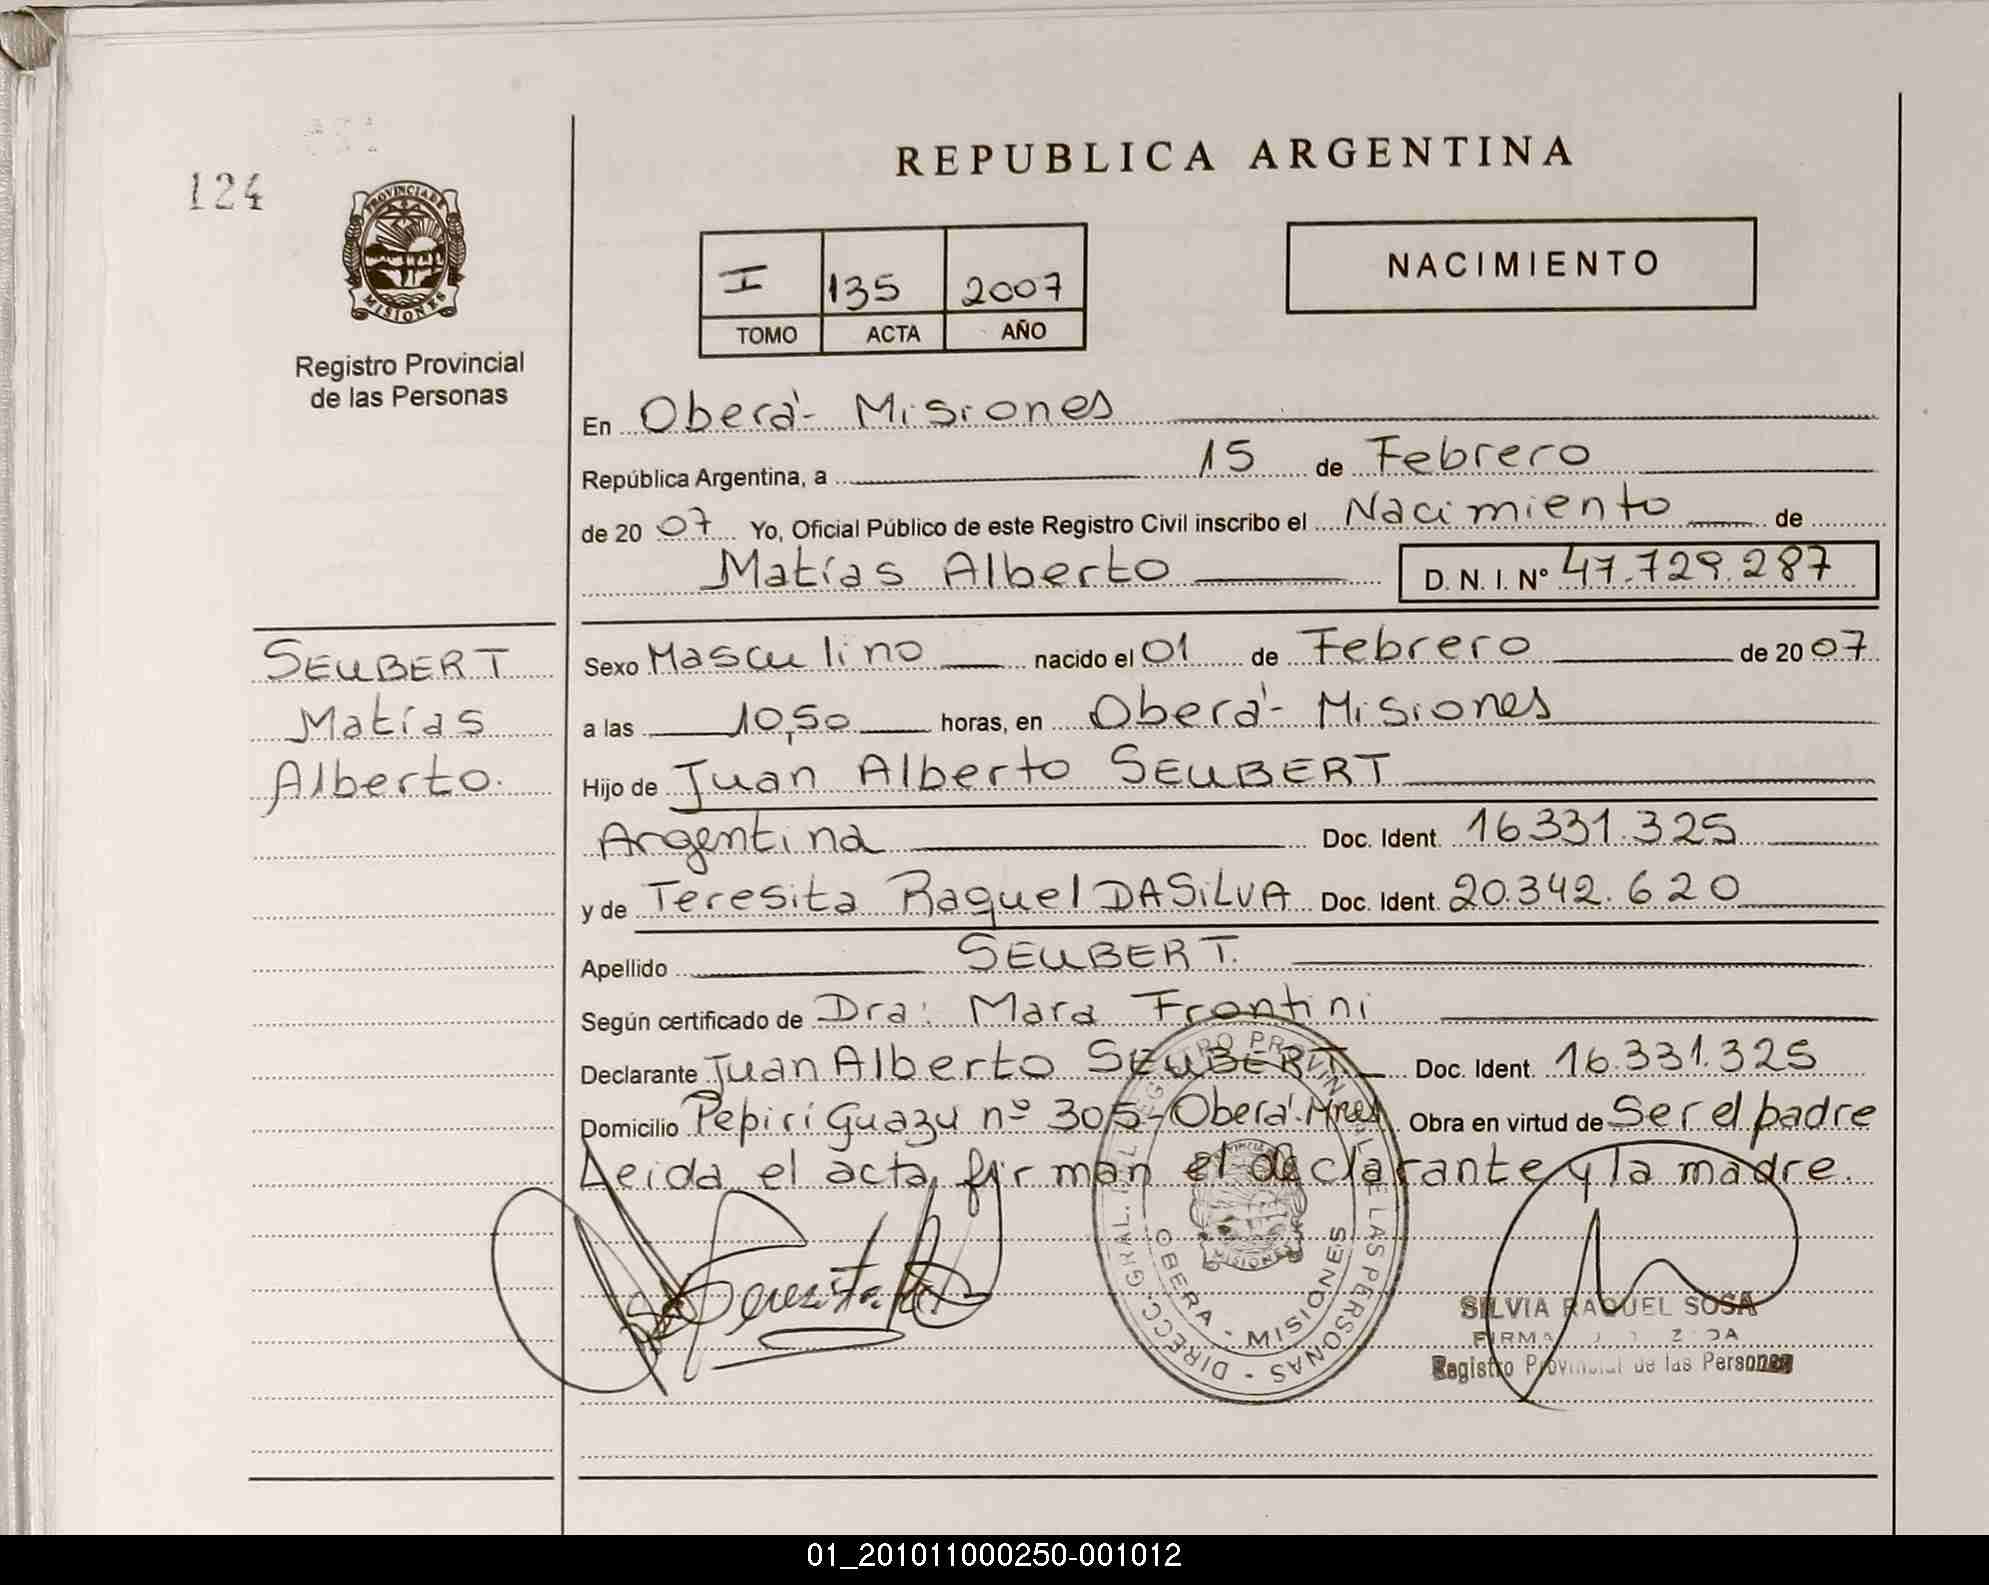 124
PROVINCIA DE
MISIONES
Registro Provincial
de las Personas
REPUBLICA ARGENTINA
I 135 2007
TOMO ACTA AÑO
NACIMIENTO
En Oberá - Misiones
República Argentina, a 15 de Febrero
de 20 07 Yo, Oficial Público de este Registro Civil inscribo el Nacimiento de
Matías Alberto D. N. I. Nº 47.729.287
SEUBERT
Matías
Alberto.
Sexo Masculino nacido el 01 de Febrero de 20 07
a las 10,50 horas, en Oberá - Misiones
Hijo de Juan Alberto SEUBERT
Argentina Doc. Ident. 16.331.325
y de Teresita Raquel DA SILVA Doc. Ident. 20.342.620
Apellido SEUBERT.
Según certificado de Dra: Mara Frontini
Declarante Juan Alberto SEUBERT Doc. Ident. 16.331.325
Domicilio Pepirí Guazu nº 305 - Oberá. Mnes Obra en virtud de Ser el padre
Leida el acta, firman el declarante y la madre.
DIRECC. GRAL. DEL REGISTRO PROVINCIAL DE LAS PERSONAS
OBERA - MISIONES
SILVIA RAQUEL SOSA
Registro Provincial de las Personas
01_201011000250-001012